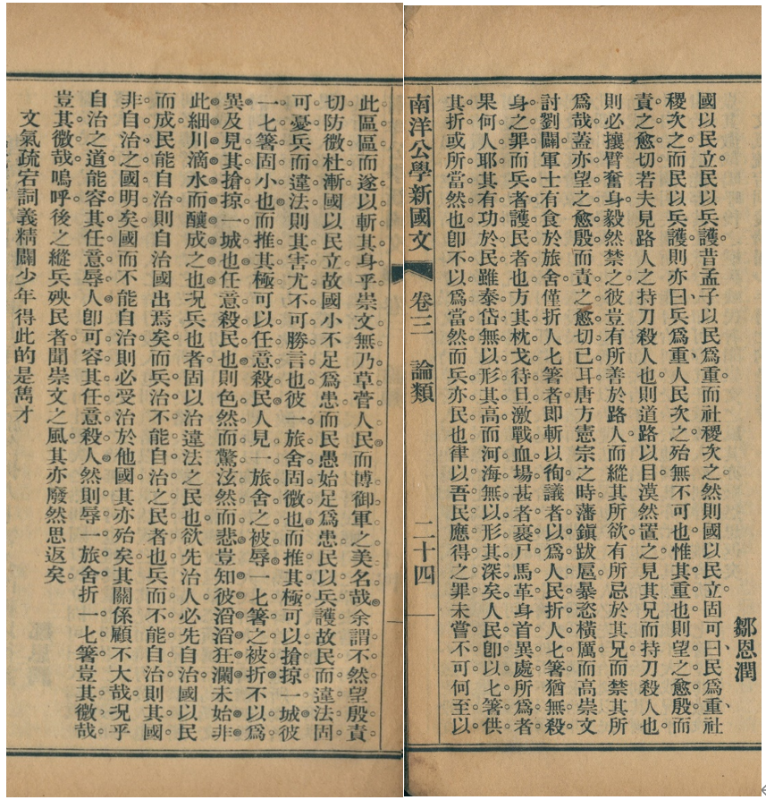 鄒恩潤
國以民立民以兵護昔孟子以民爲重而社稷次之然則國以民立固可曰民爲重社
稷次之而民以兵護則亦曰兵爲重人民次之殆無不可也惟其重也則望之愈殷而
責之愈切若夫見路人之持刀殺人也則道路以目漠然置之見其兄而持刀殺人也
則必攘臂奮身毅然禁之彼豈有所善於路人而縱其所欲有所忌於其兄而禁其所
爲哉蓋亦望之愈殷而責之愈切已耳唐方憲宗之時藩鎭跋扈暴恣橫厲而高崇文
討劉闢軍士有食於旅舍僅折人七箸者即斬以徇議者以爲人民折人七箸猶無殺
身之罪而兵者護民者也方其枕戈待旦激戰血塲甚者裹尸馬革身首異處所爲者
果何人耶其有功於民雖泰岱無以形其高而河海無以形其深矣人民卽以七箸供
其折或所當然也卽不以爲當然而兵亦民也律以吾民應得之罪未嘗不可何至以
南洋公學新國文 卷三 論類 二十四
此區區而遂以斬其身乎崇文無乃草菅人民而博御軍之美名哉余謂不然望殷責
切防微杜漸國以民立故國小不足爲患而民愚始足爲患民以兵護故民而違法固
可憂兵而違法則其害尤不可勝言也彼一旅舍固微也而推其極可以搶掠一城彼
一七箸固小也而推其極可以任意殺民人見一旅舍之被辱一七箸之被折不以爲
異及見其搶掠一城也任意殺民也則色然而驚泫然而悲豈知彼滔滔狂瀾未始非
此細川滴水而釀成之也况兵也者固以治違法之民也欲先治人必先自治國以民
而成民能自治則自治國出焉矣而兵治不能自治之民者也兵而不能自治則其國
非自治之國明矣國而不能自治則必受治於他國其亦殆矣其關係顧不大哉况乎
自治之道能容其任意辱人卽可容其任意殺人然則辱一旅舍折一七箸豈其微哉
豈其微哉嗚呼後之縱兵殃民者聞崇文之風其亦廢然思返矣
文氣疏宕詞義精闢少年得此的是雋才